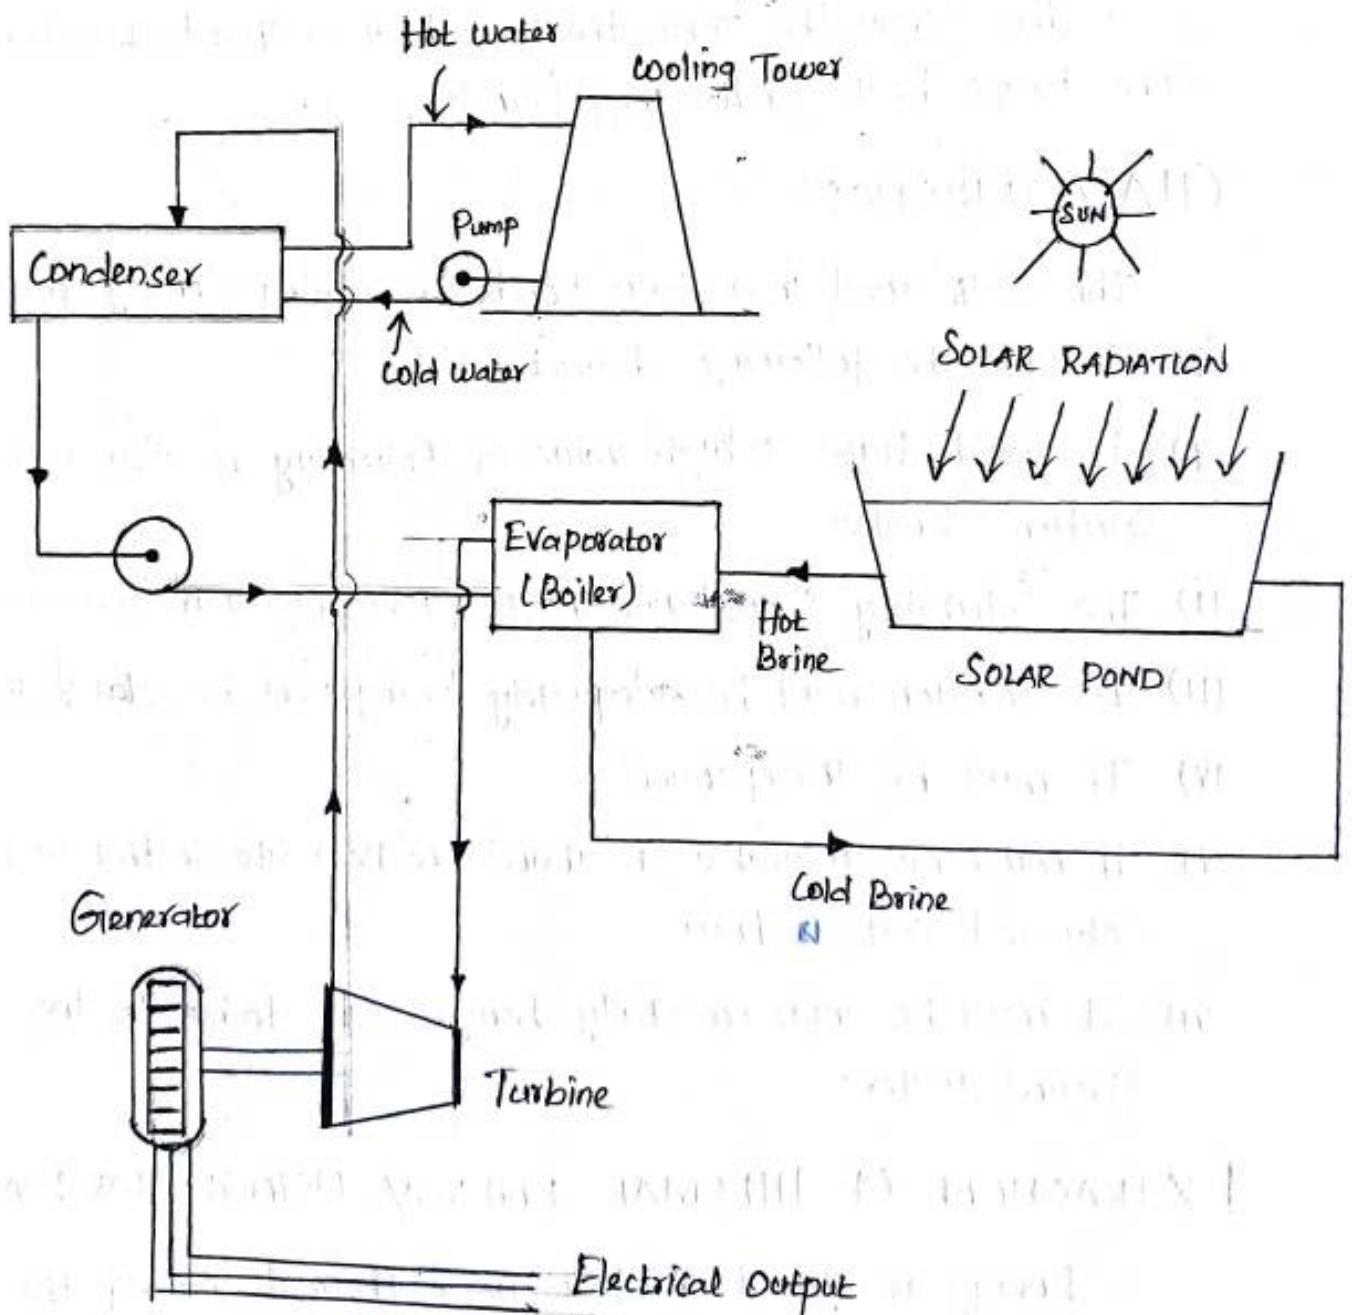 Hot water
Cooling Tower
SUN
Pump
Condenser
Cold water
SOLAR RADIATION
Evaporator
(Boiler)
Hot
Brine
SOLAR POND
Cold Brine
Generator
Turbine
Electrical Output